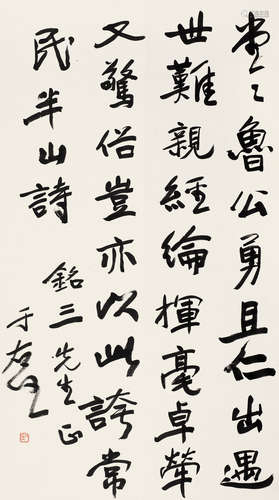 堂々魯公勇且仁出遇
世難親經綸揮毫卓犖
又驚俗豈亦以此誇常
民半山詩
銘三先生正
于右任